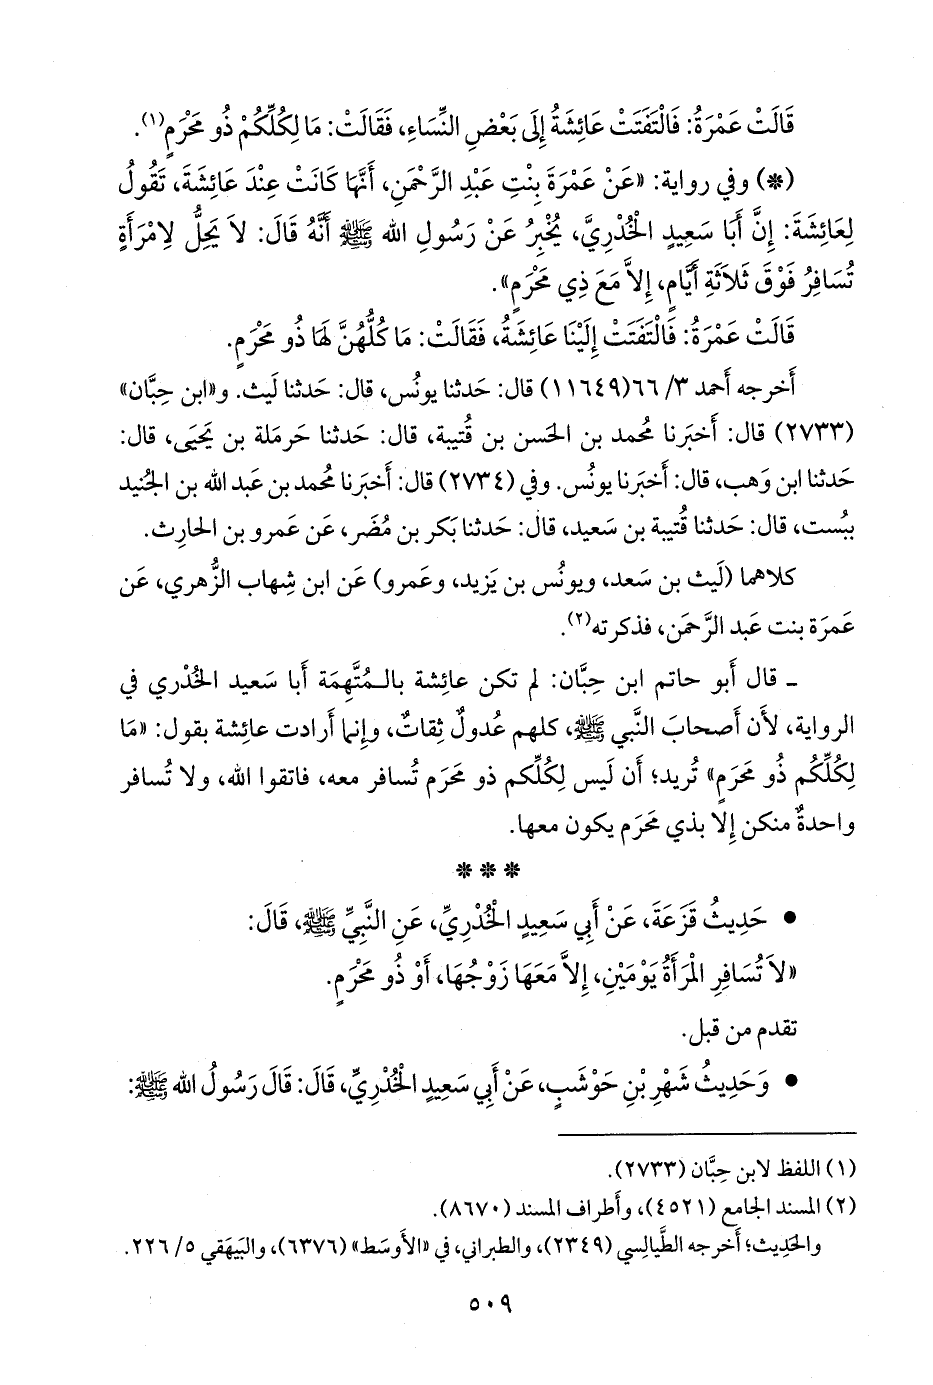 قَالَتْ عَمْرَةُ: فَالْتَفَتَتْ عَائِشَةُ إِلَى بَعْضِ النِّسَاءِ، فَقَالَتْ: مَا لِكُلِّكُمْ ذُو مَحْرَمٍ(١).
(*) وفي رواية: «عَنْ عَمْرَةَ بِنْتِ عَبْدِ الرَّحْمَنِ، أَنَّهَا كَانَتْ عِنْدَ عَائِشَةَ، تَقُولُ
لِعَائِشَةَ: إِنَّ أَبَا سَعِيدٍ الْخُدْرِيَّ، يُخْبِرُ عَنْ رَسُولِ الله ﷺ أَنَّهُ قَالَ: لاَ يَحِلُّ لاِمْرَأَةٍ
تُسَافِرُ فَوْقَ ثَلاَثَةِ أَيَّامٍ، إِلاَّ مَعَ ذِي مَحْرَمٍ».
قَالَتْ عَمْرَةُ: فَالْتَفَتَتْ إِلَيْنَا عَائِشَةُ، فَقَالَتْ: مَا كُلُّهُنَّ لَهَا ذُو مَحْرَمٍ.
أَخرجه أَحمد ٣/ ٦٦(١١٦٤٩) قال: حَدثنا يونُس، قال: حَدثنا لَيث. و«ابن حِبَّان»
(٢٧٣٣) قال: أَخبَرنا مُحمد بن الحَسن بن قُتيبة، قال: حَدثنا حَرملة بن يَحيَى، قال:
حَدثنا ابن وَهب، قال: أَخبَرنا يونُس. وفي (٢٧٣٤) قال: أَخبَرنا مُحمد بن عَبد الله بن الجُنيد
ببُست، قال: حَدثنا قُتيبة بن سَعيد، قال: حَدثنا بَكر بن مُضَر، عَن عَمرو بن الحارِث.
كلاهما (لَيث بن سَعد، ويونُس بن يَزيد، وعَمرو) عَن ابن شِهاب الزُّهري، عَن
عَمرَة بنت عَبد الرَّحمَن، فذكرته(٢).
ـ قال أَبو حاتم ابن حِبَّان: لم تكن عائِشة بالـمُتَّهِمَة أَبا سَعيد الخُدْري في
الرواية، لأَن أَصحابَ النَّبي ﷺ، كلهم عُدولٌ ثِقاتٌ، وإِنما أَرادت عائِشة بقول: «مَا
لِكُلِّكُم ذُو مَحرَمٍ» تُريد؛ أَن لَيس لِكُلِّكم ذو مَحرَم تُسافر معه، فاتقوا الله، ولا تُسافر
واحدةٌ منكن إِلا بذي مَحرَم يكون معها.
* * *
• حَدِيثُ قَزَعَةَ، عَنْ أَبِي سَعِيدٍ الْخُدْرِيِّ، عَنِ النَّبِيِّ ﷺ، قَالَ:
«لاَ تُسَافِرِ الْمَرْأَةُ يَوْمَيْنِ، إِلاَّ مَعَهَا زَوْجُهَا، أَوْ ذُو مَحْرَمٍ.
تقدم من قبل.
• وَحَدِيثُ شَهْرِ بْنِ حَوْشَبٍ، عَنْ أَبِي سَعِيدٍ الْخُدْرِيِّ، قَالَ: قَالَ رَسُولُ الله ﷺ:
(١) اللفظ لابن حِبَّان (٢٧٣٣).
(٢) المسند الجامع (٤٥٢١)، وأَطراف المسند (٨٦٧٠).
والحَدِيث؛ أَخرجه الطَّيالِسي (٢٣٤٩)، والطبراني، في «الأَوسَط» (٦٣٧٦)، والبَيهَقي ٥/ ٢٢٦.
٥٠٩